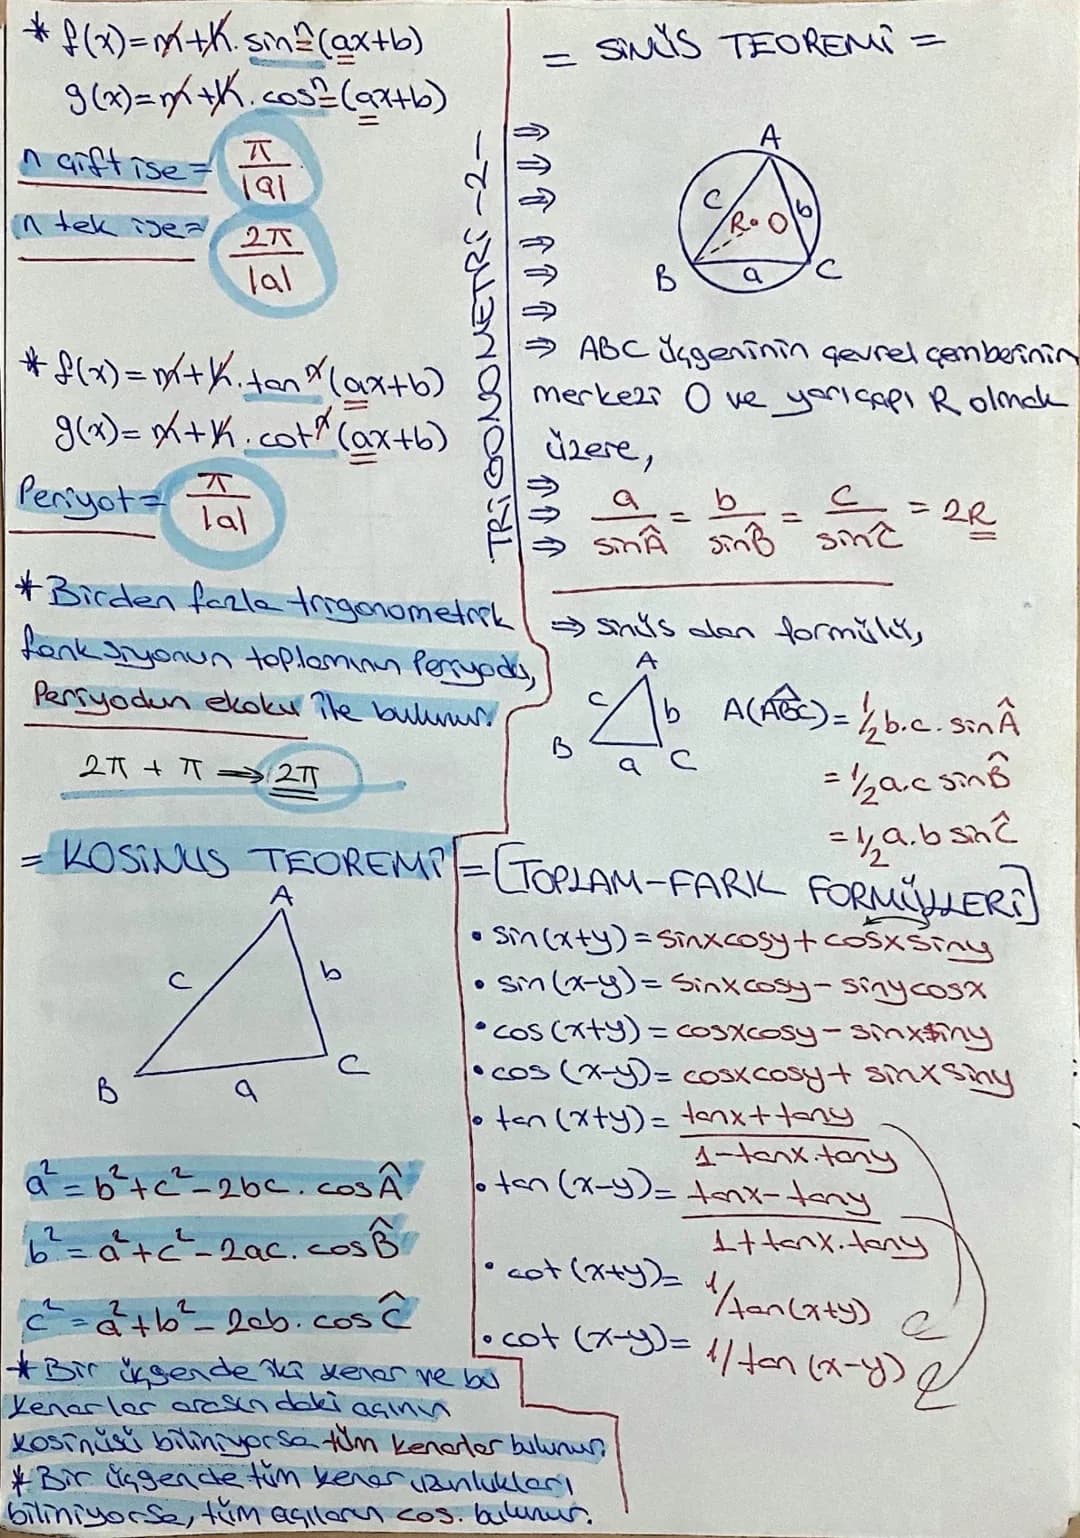 * f(x)=m+k.sinⁿ(ax+b)
g(x)=m+k.cosⁿ(ax+b)
n çift ise = π/|a|
n tek ise = 2π/|a|
* f(x)=m+k.tanⁿ(ax+b)
g(x)=m+k.cotⁿ(ax+b)
Periyot = π/|a|
* Birden fazla trigonometrik
fonksiyonun toplamının Periyodu,
Periyodun ekoku ile bulunur.
2π + π ⇒ 2π
TRİGONOMETRİ -2-
= SİNÜS TEOREMİ =
A
c b
R O
B a C
⇒ ABC üçgeninin çevrel çemberinin
merkezi O ve yarıçapı R olmak
üzere,
a/sinÂ = b/sinB̂ = c/sinĈ = 2R
⇒ sinüs alan formülü,
A
c b
B a C
A(ABC)= 1/2 b.c. sinÂ
= 1/2 a.c sinB̂
= 1/2 a.b sinĈ
= KOSİNÜS TEOREMİ =
A
c b
B a C
a² = b²+c²-2bc. cosÂ
b² = a²+c²-2ac. cosB̂
c² = a²+b²-2ab. cosĈ
* Bir üçgende iki kenar ve bu
kenarlar arasındaki açının
kosinüsü biliniyorsa tüm kenarlar bulunur.
* Bir üçgende tüm kenar uzunlukları
biliniyorsa, tüm açıların cos. bulunur.
[TOPLAM-FARK FORMÜLLERİ]
• sin(x+y)=sinxcosy+cosxsiny
• sin(x-y)= sinxcosy-sinycosx
• cos(x+y)= cosxcosy-sinxsiny
• cos (x-y)= cosxcosy+ sinxsiny
• tan(x+y)= tanx+tany/1-tanx.tany
• tan(x-y)= tanx-tany/1+tanx.tany
• cot(x+y)= 1/tan(x+y)
• cot (x-y)= 1/tan(x-y)